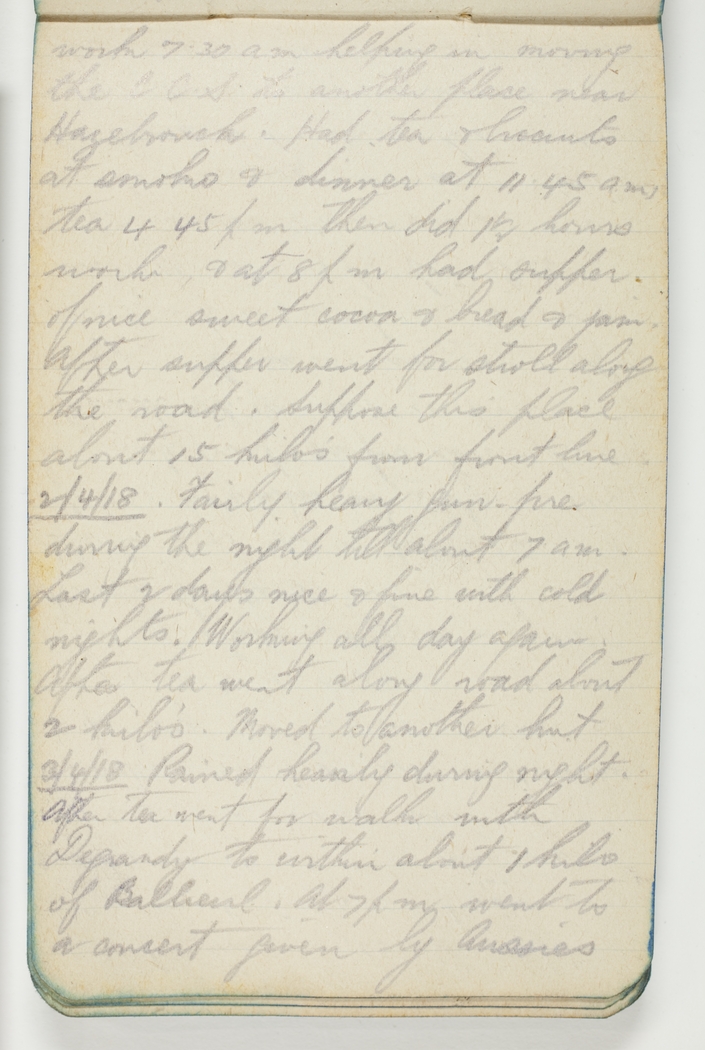 work 7.30 am helping in moving
the 2 C.C.S. to another place near
Hazebrouck. Had tea & biscuits
at smoko & dinner at 11 45 am,
tea 4 45 pm then did 1½ hours
work, & at 8 pm had supper
of nice sweet cocoa & bread & jam.
After supper went for stroll along
the road. Suppose this place
about 15 kilo's from front line
2/4/18. Fairly heavy gun-fire
during the night till about 7 am.
Last 2 days nice & fine with cold
nights. Working all day again.
After tea went along road about
2 kilo's. Moved to another hut
3/4/18 Rained heavily during night.
After tea went for walk with
to within about 1 kilo
of Bailleul. At 7 pm went to
a concert given by Aussies